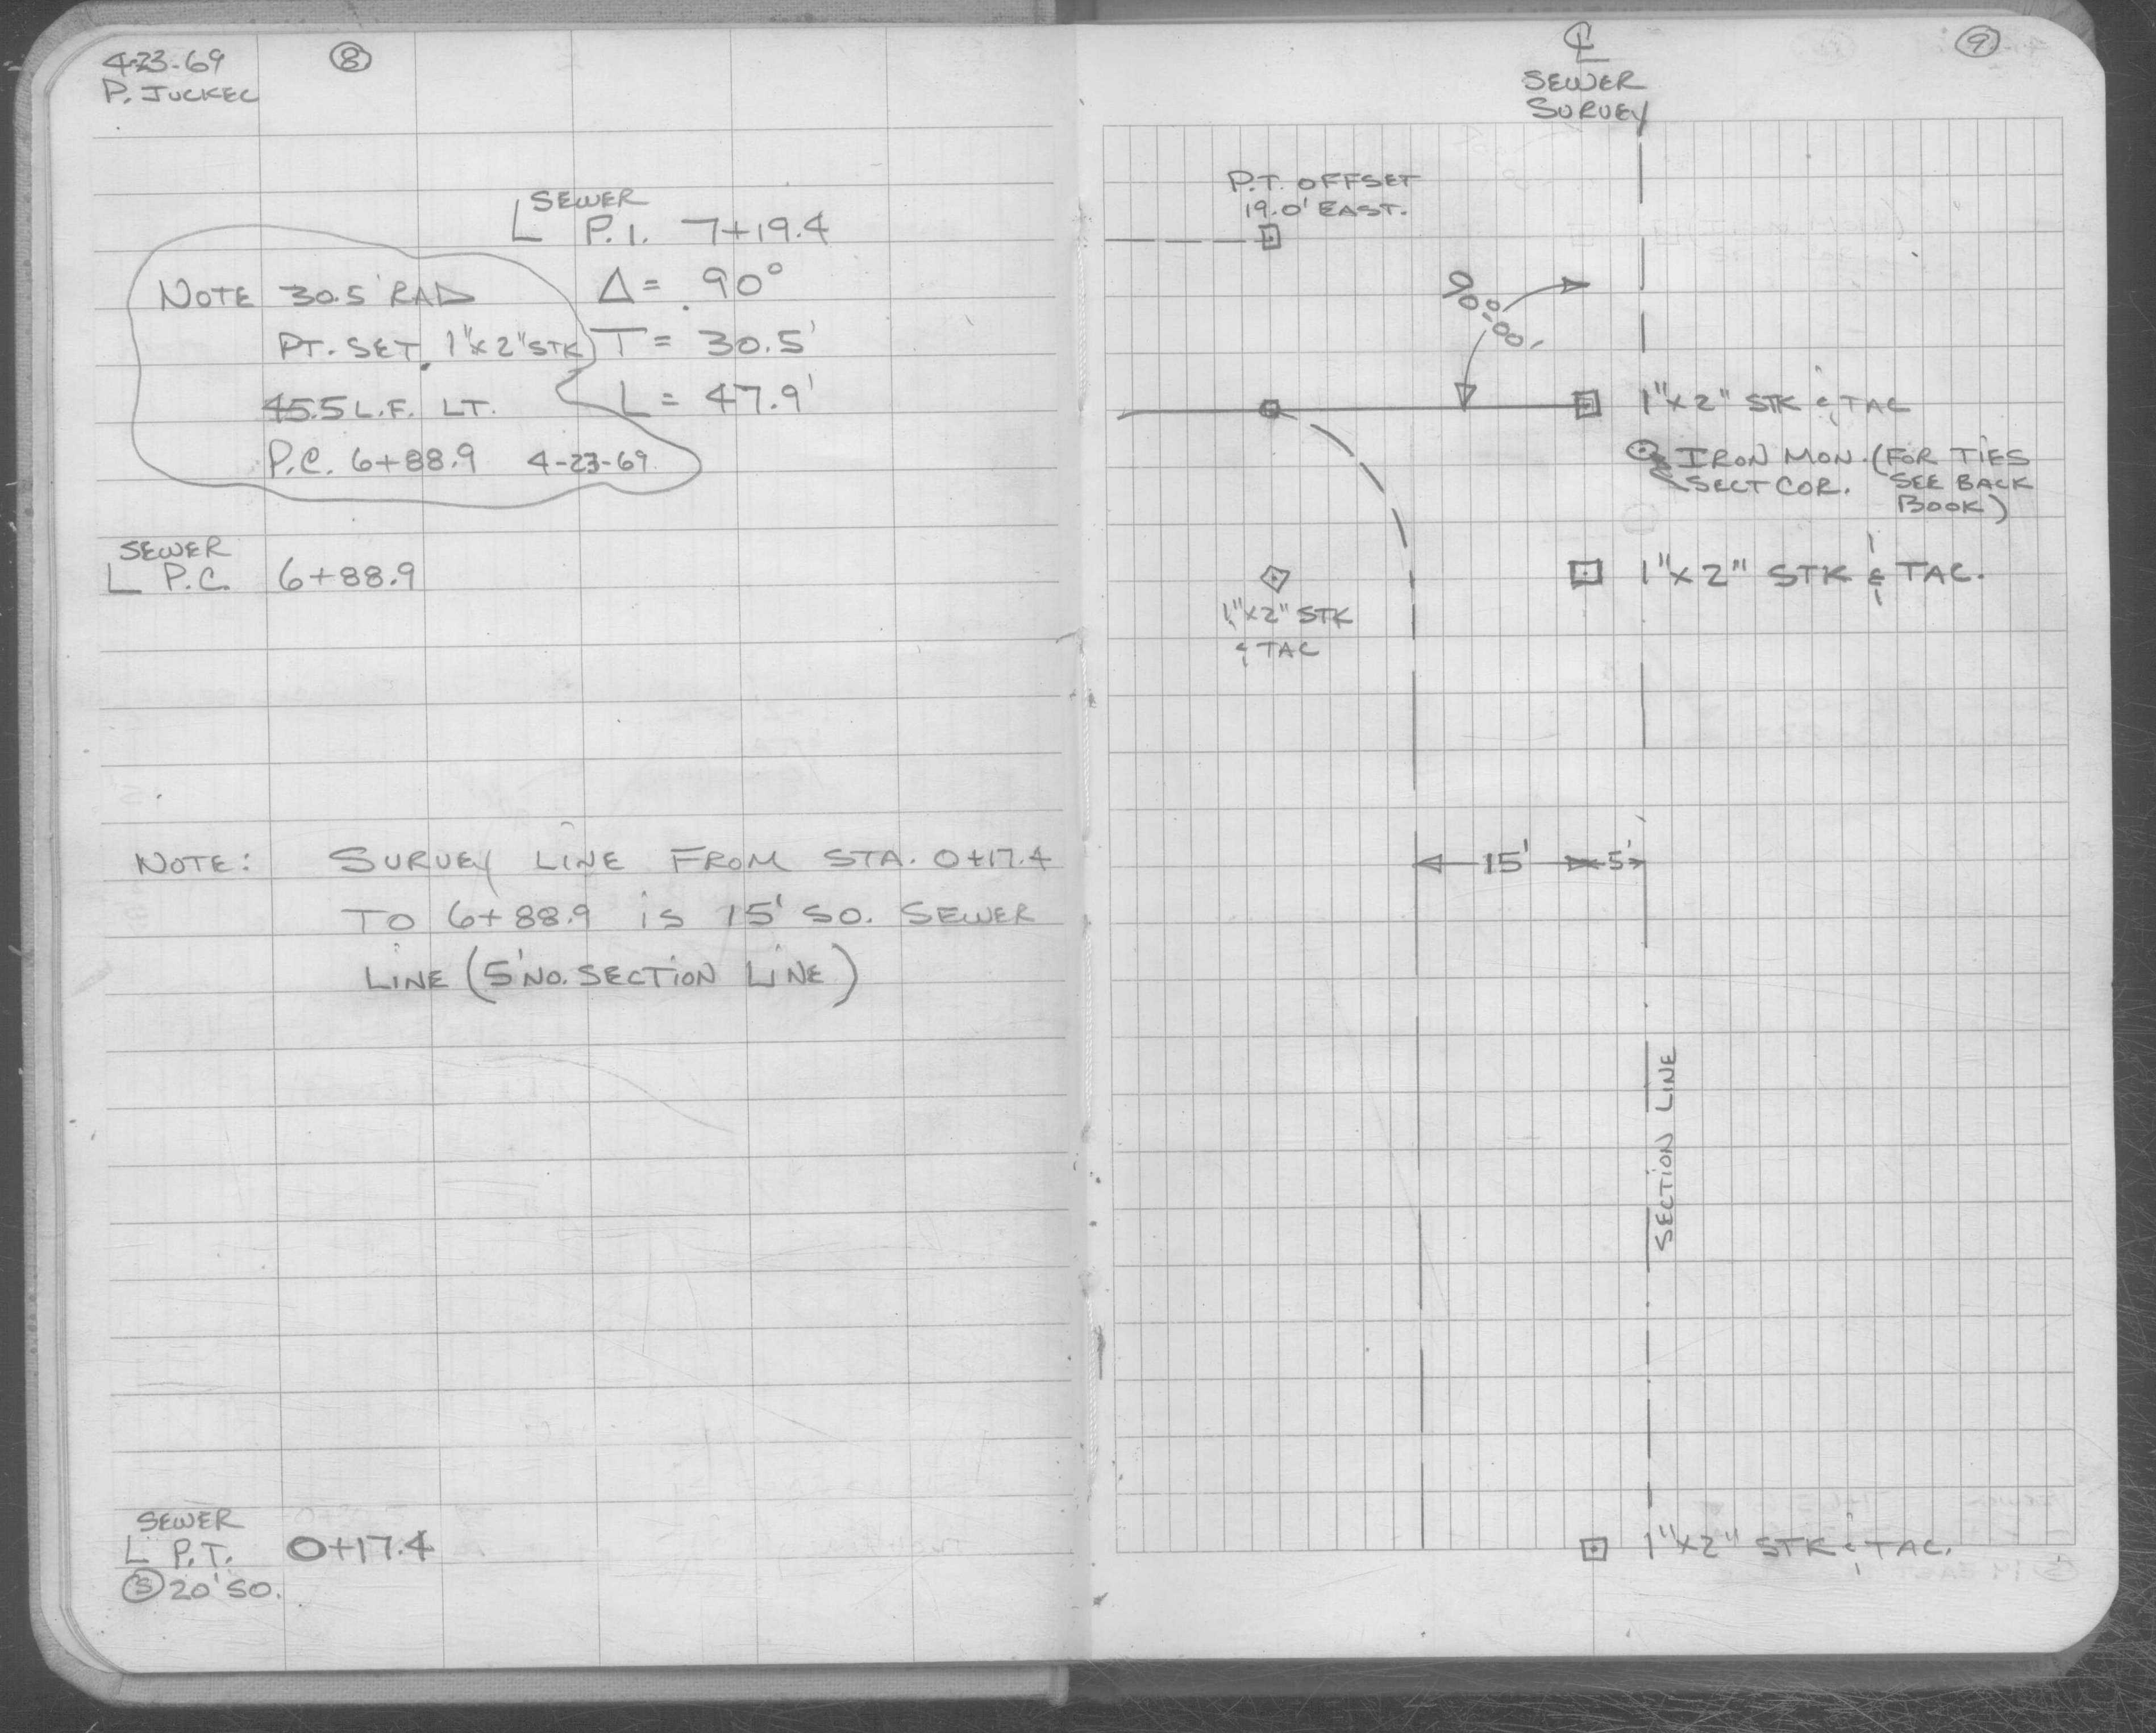 4-23-69
P. JUCKEL
8
SEWER
L P.I. 7+19.4
Δ = 90°
T = 30.5'
L = 47.9'
NOTE 30.5' RAD
PT. SET. 1"x2" STK
45.5 L.F. LT.
P.C. 6+88.9 4-23-69
SEWER
L P.C. 6+88.9
NOTE: SURVEY LINE FROM STA. 0+17.4
TO 6+88.9 IS 15' SO. SEWER
LINE (5' NO. SECTION LINE)
SEWER
L P.T. 0+17.4
S 20' SO.
9
℄
SEWER
SURVEY
P.T. OFFSET
19.0' EAST.
90°00'
1"x2" STK & TAC
IRON MON. (FOR TIES
SECT COR. SEE BACK
BOOK)
1"x2" STK & TAC.
1"x2" STK
& TAC
15' 5'
SECTION LINE
1"x2" STK & TAC.